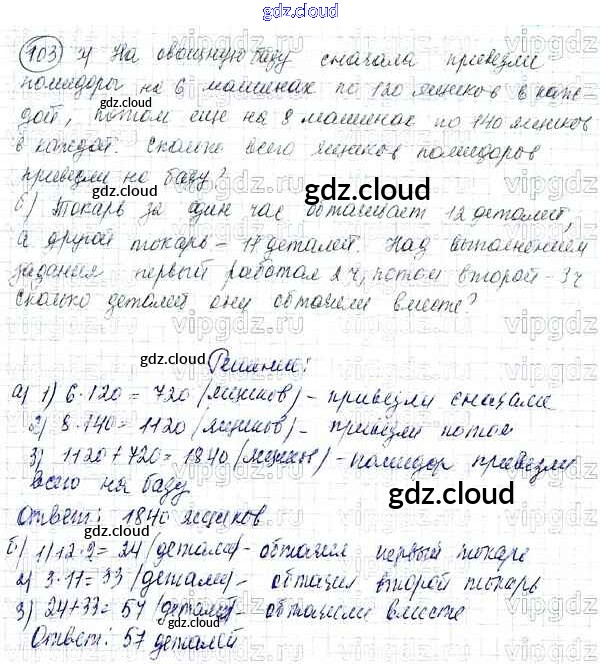 gdz.cloud
103 а) На овощную базу сначала привезли
помидоры на 6 машинах по 120 ящиков в каж-
дой, потом еще на 8 машинах по 140 ящиков
в каждой. Сколько всего ящиков помидоров
привезли на базу?
б) Токарь за один час обтачивает 12 деталей,
а другой токарь – 11 деталей. Над выполнением
задания первый работал 2 ч, потом второй – 3 ч
сколько деталей они обточили вместе?
Решение:
а) 1) 6·120 = 720 (ящиков) – привезли сначала
2) 8·140 = 1120 (ящиков) – привезли потом
3) 1120+720 = 1840 (ящиков) – помидор привезли
всего на базу
Ответ: 1840 ящиков
б) 1) 12·2 = 24 (детали) – обточил первый токарь
2) 3·11 = 33 (детали) – обточил второй токарь
3) 24+33 = 57 (деталей) – обточили вместе
Ответ: 57 деталей
gdz.cloud
gdz.cloud
gdz.cloud
gdz.cloud
gdz.cloud
gdz.cloud
gdz.cloud
gdz.cloud
vipgdz.ru